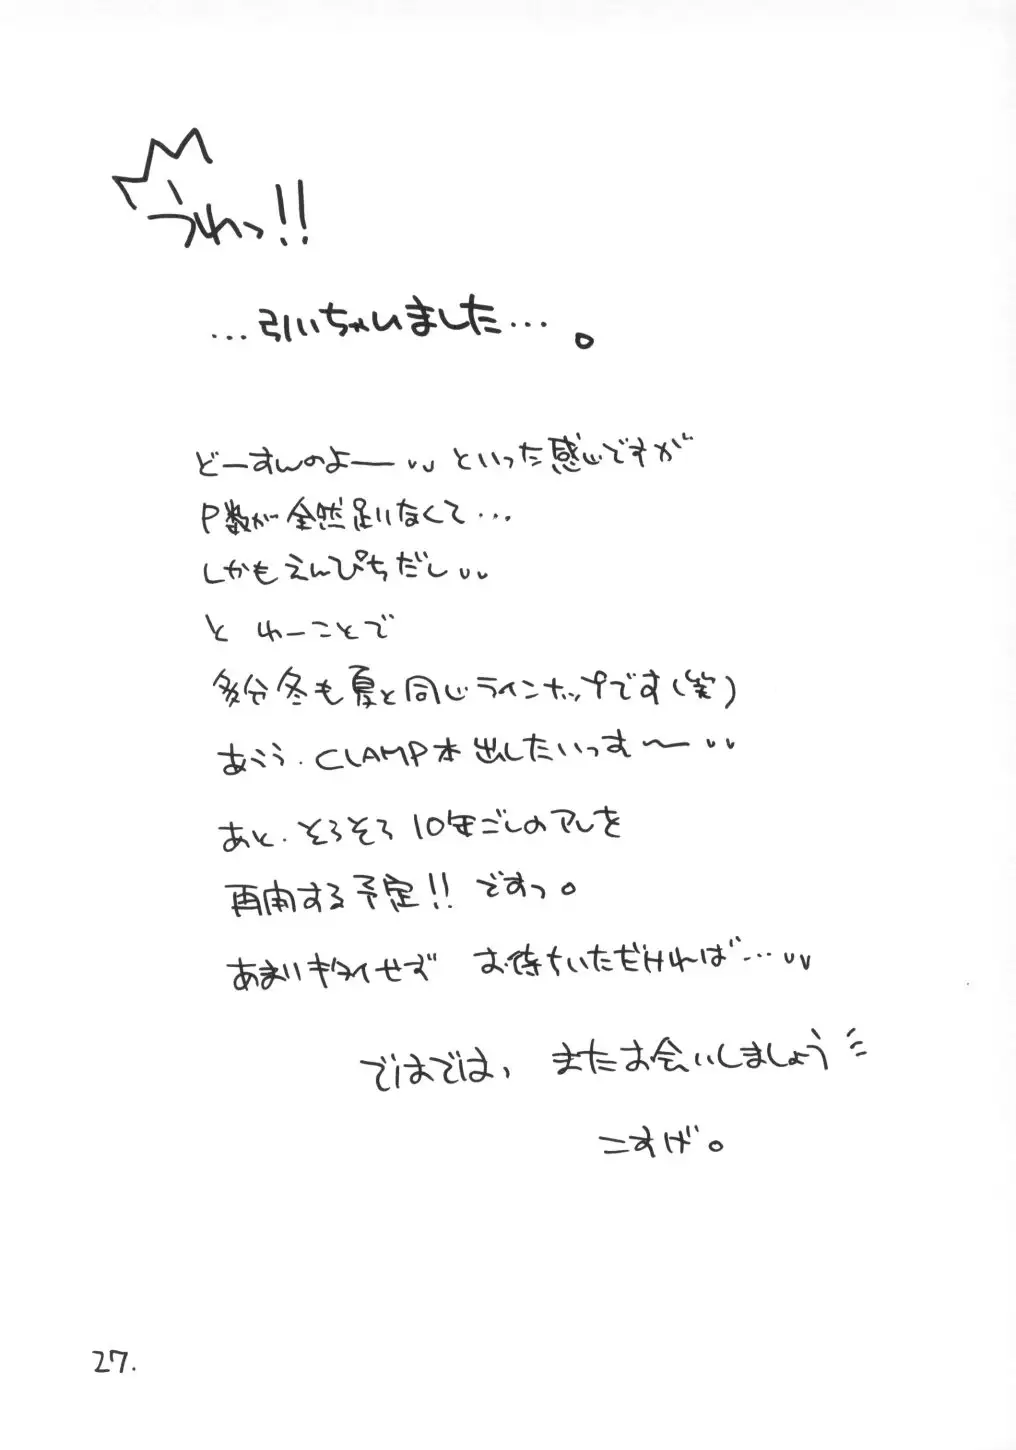 うわっ!!
…引いちゃいました…。
どーすんのよー といった感じですが
P数が全然足りなくて…
しかもえんぴつだし
と ゆーことで
多分冬も夏と同じラインナップです(笑)
あうう. CLAMP本出したいっす〜
あと. そろそろ10年ごしのアレを
再開する予定!! ですっ。
あまりキタイせず お待ちいただければ…
ではでは, またお会いしましょう
こすげ。
27.